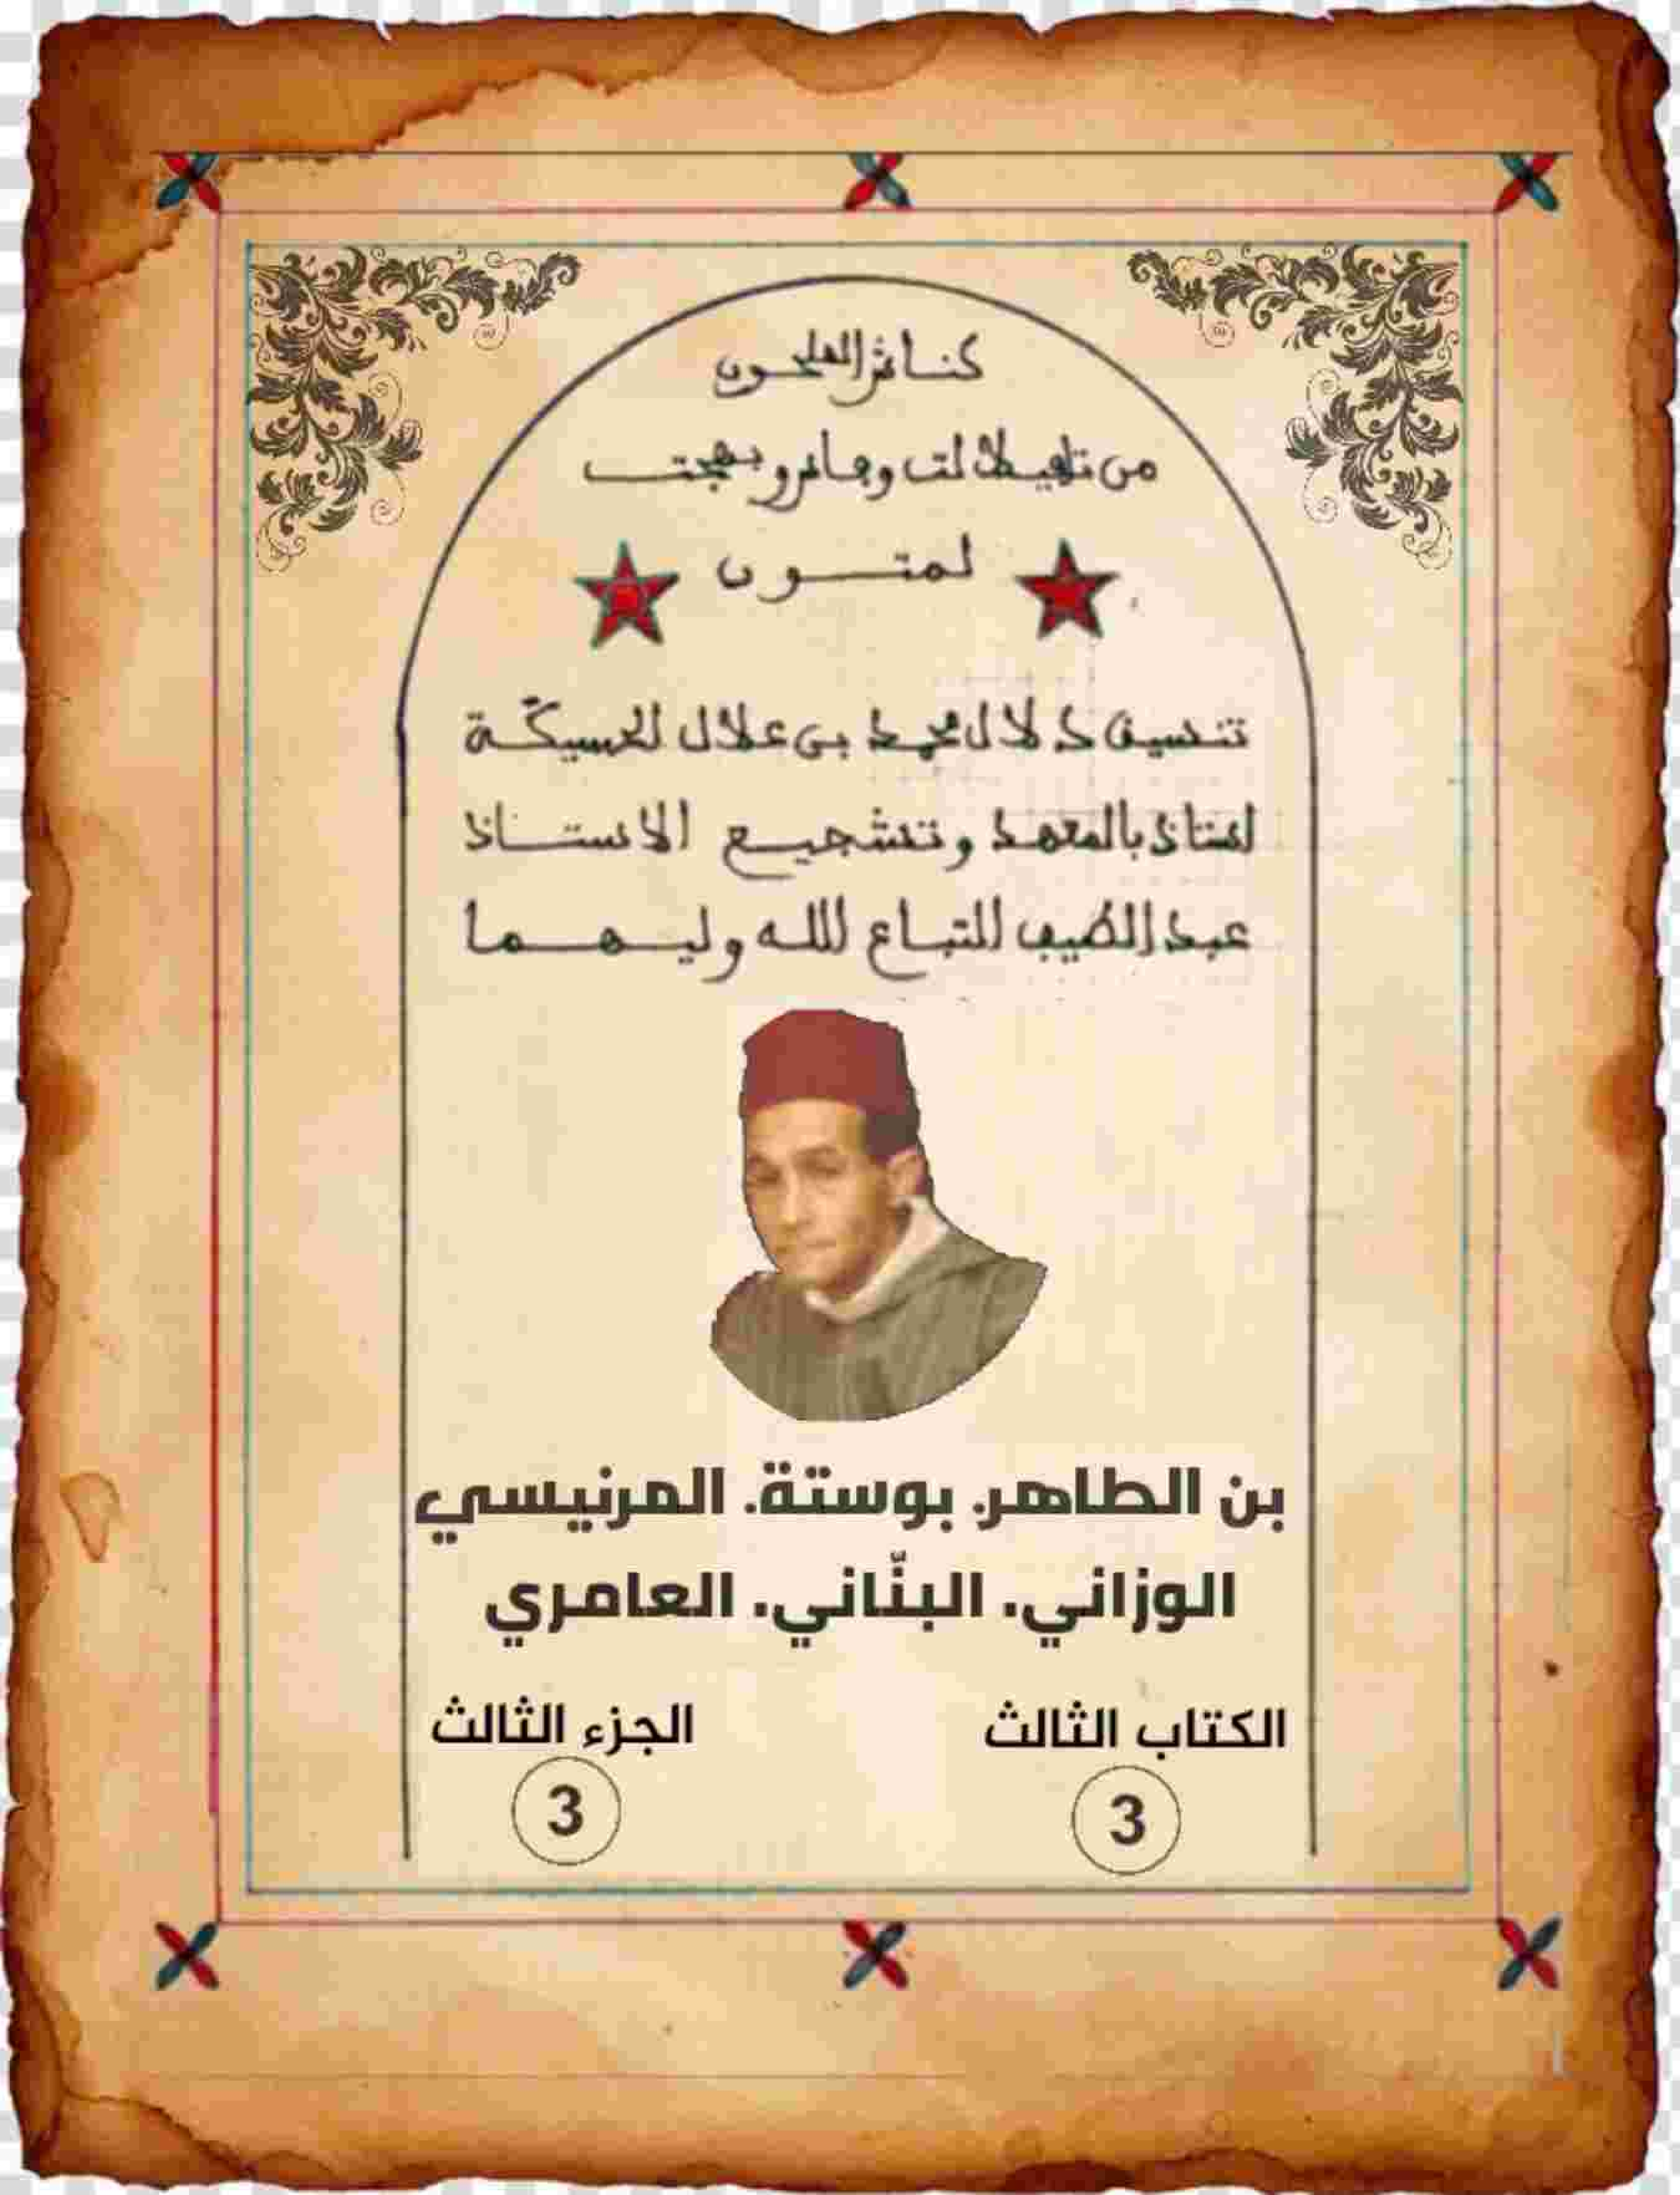 كناش الملحون
من تافيلالت وفاس وبهجت
لمتون
تنسيق دلال محمد بن علال لحسيكة
لستاذ بالمعهد وتشجيع الاستاذ
عبد الطيب للتباع لله وليهما
بن الطاهر. بوستة. المرنيسي
الوزاني. البنّاني. العامري
الكتاب الثالث
الجزء الثالث
3
3